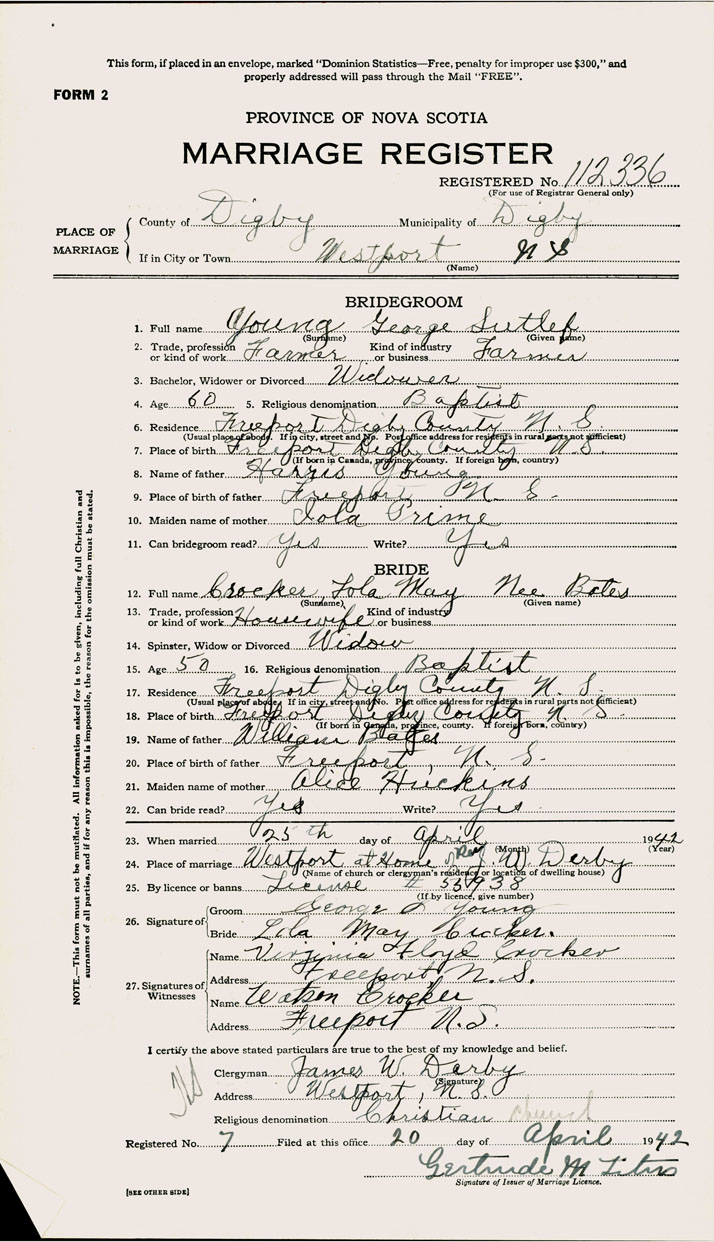 This form, if placed in an envelope, marked "Dominion Statistics—Free, penalty for improper use $300," and
properly addressed will pass through the Mail "FREE".
FORM 2
PROVINCE OF NOVA SCOTIA
MARRIAGE REGISTER
REGISTERED No. 112336
(For use of Registrar General only)
PLACE OF MARRIAGE
County of Digby Municipality of Digby
If in City or Town Westport N S
(Name)
BRIDEGROOM
1. Full name Young George
(Surname) (Given name)
2. Trade, profession or kind of work Farmer Kind of industry or business Farmer
3. Bachelor, Widower or Divorced Widower
4. Age 60 5. Religious denomination Baptist
6. Residence Freeport Digby County N. S.
(Usual place of abode. If in city, street and No. Post office address for residents in rural parts not sufficient)
7. Place of birth Freeport Digby County N. S.
(If born in Canada, province, county. If foreign born, country)
8. Name of father Harris Young
9. Place of birth of father Freeport N. S.
10. Maiden name of mother Prime
11. Can bridegroom read? Yes Write? Yes
BRIDE
12. Full name Crocker Lola May Nee Bates
(Surname) (Given name)
13. Trade, profession or kind of work Housewife Kind of industry or business
14. Spinster, Widow or Divorced Widow
15. Age 50 16. Religious denomination Baptist
17. Residence Freeport Digby County N. S.
(Usual place of abode. If in city, street and No. Post office address for residents in rural parts not sufficient)
18. Place of birth Freeport Digby County N. S.
(If born in Canada, province, county. If foreign born, country)
19. Name of father William Bates
20. Place of birth of father Freeport, N. S.
21. Maiden name of mother Alice Huckins
22. Can bride read? Yes Write? Yes
23. When married 25th day of April 1942
(Month) (Year)
24. Place of marriage Westport at Home of Rev J. W. Derby
(Name of church or clergyman's residence or location of dwelling house)
25. By licence or banns License # 53938
(If by licence, give number)
26. Signature of
Groom George S Young
Bride Lola May Crocker.
27. Signatures of Witnesses
Name Virginia Floyd Crocker
Address Freeport N. S.
Name Watson Crocker
Address Freeport N.S.
I certify the above stated particulars are true to the best of my knowledge and belief.
Clergyman James W. Derby
(Signature)
Address Westport, N. S.
Religious denomination Christian church
Registered No. 7 Filed at this office 20 day of April 1942
Gertrude M Titus
Signature of Issuer of Marriage Licence.
[SEE OTHER SIDE]
NOTE.—This form must not be mutilated. All information asked for is to be given, including full Christian and
surnames of all parties, and if for any reason this is impossible, the reason for the omission must be stated.